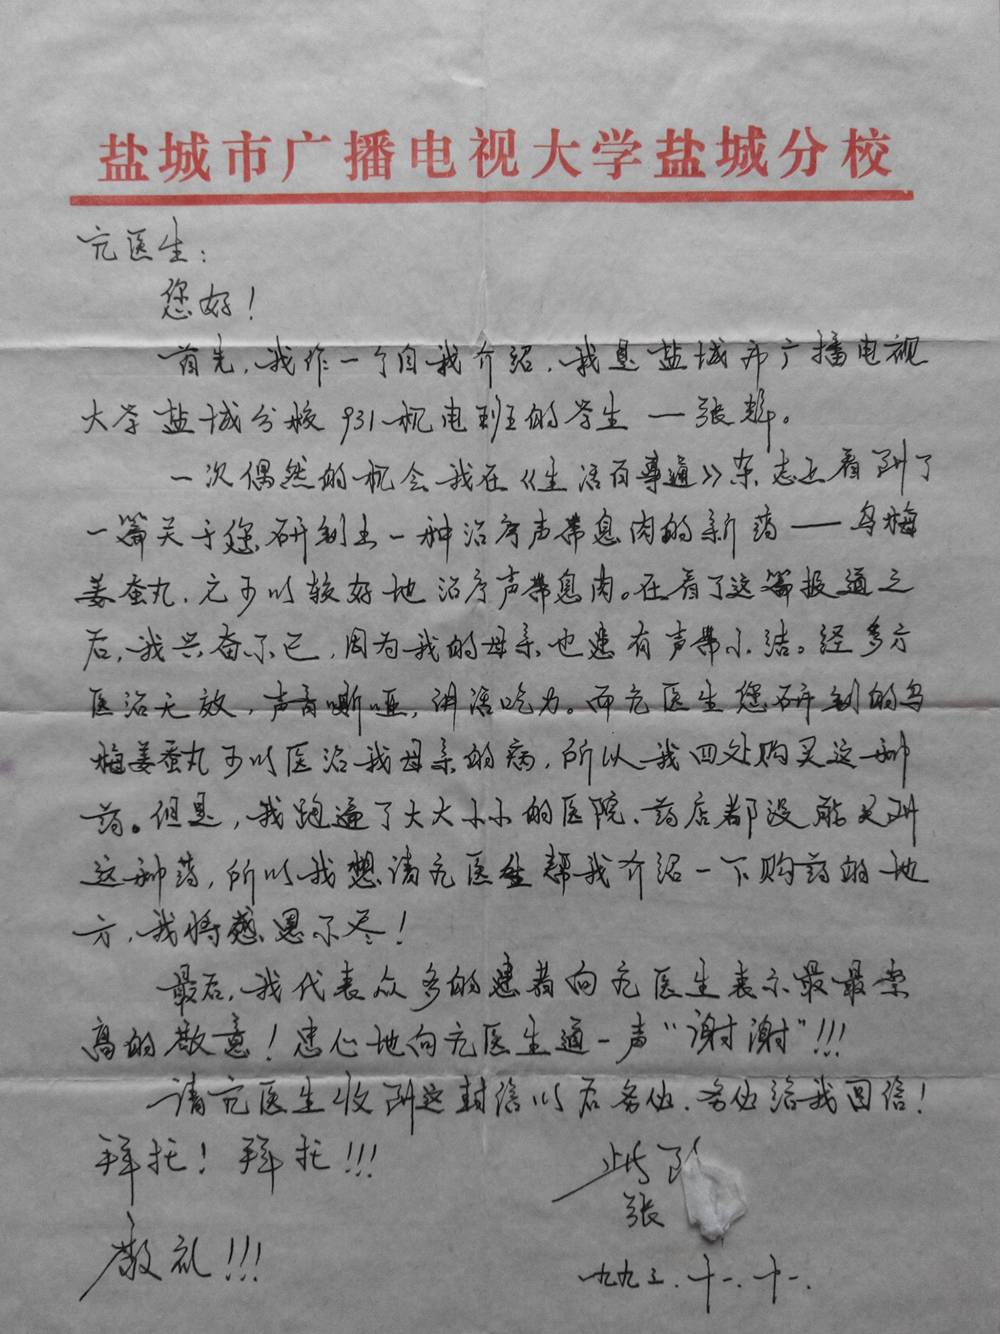 盐城市广播电视大学盐城分校
亢医生：
您好！
首先，我作一个自我介绍，我是盐城市广播电视
大学盐城分校931机电班的学生 — 张
一次偶然的机会我在《生活百事通》杂志上看到了
一篇关于您研制出一种治疗声带息肉的新药——乌梅
姜蚕丸，它可以较好地治疗声带息肉。在看了这篇报道之
后，我兴奋不已，因为我的母亲也患有声带小结。经多方
医治无效，声音嘶哑，讲话吃力。而亢医生您研制的乌
梅姜蚕丸可以医治我母亲的病，所以我四处购买这一种
药。但是，我跑遍了大大小小的医院、药店都没能买到
这种药，所以我想请亢医生帮我介绍一下购药的地
方，我将感恩不尽！
最后，我代表众多的患者向亢医生表示最最崇
高的敬意！忠心地向亢医生道一声“谢谢”!!!
请亢医生收到这封信以后务必、务必给我回信！
拜托！拜托!!!
此致
张
敬礼!!!
九九三.十一.十一.